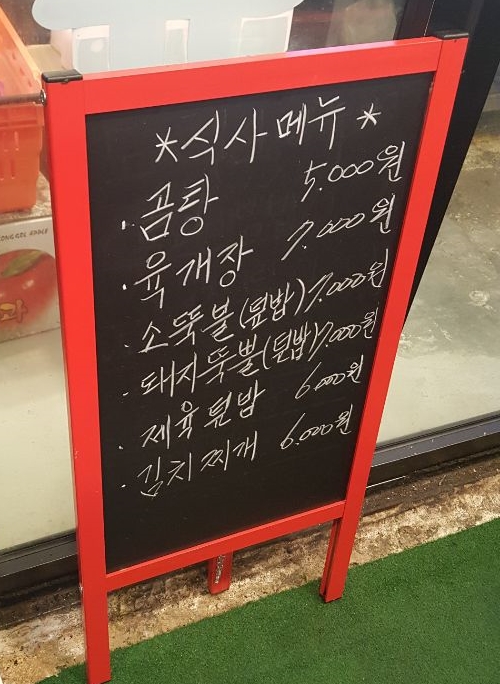 *식사메뉴*
·곰탕 5.000원
·육개장 7.000원
·소뚝불(덮밥) 7.000원
·돼지뚝뿔(덮밥) 7,000원
·제육덮밥 6.000원
·김치찌개 6.000원